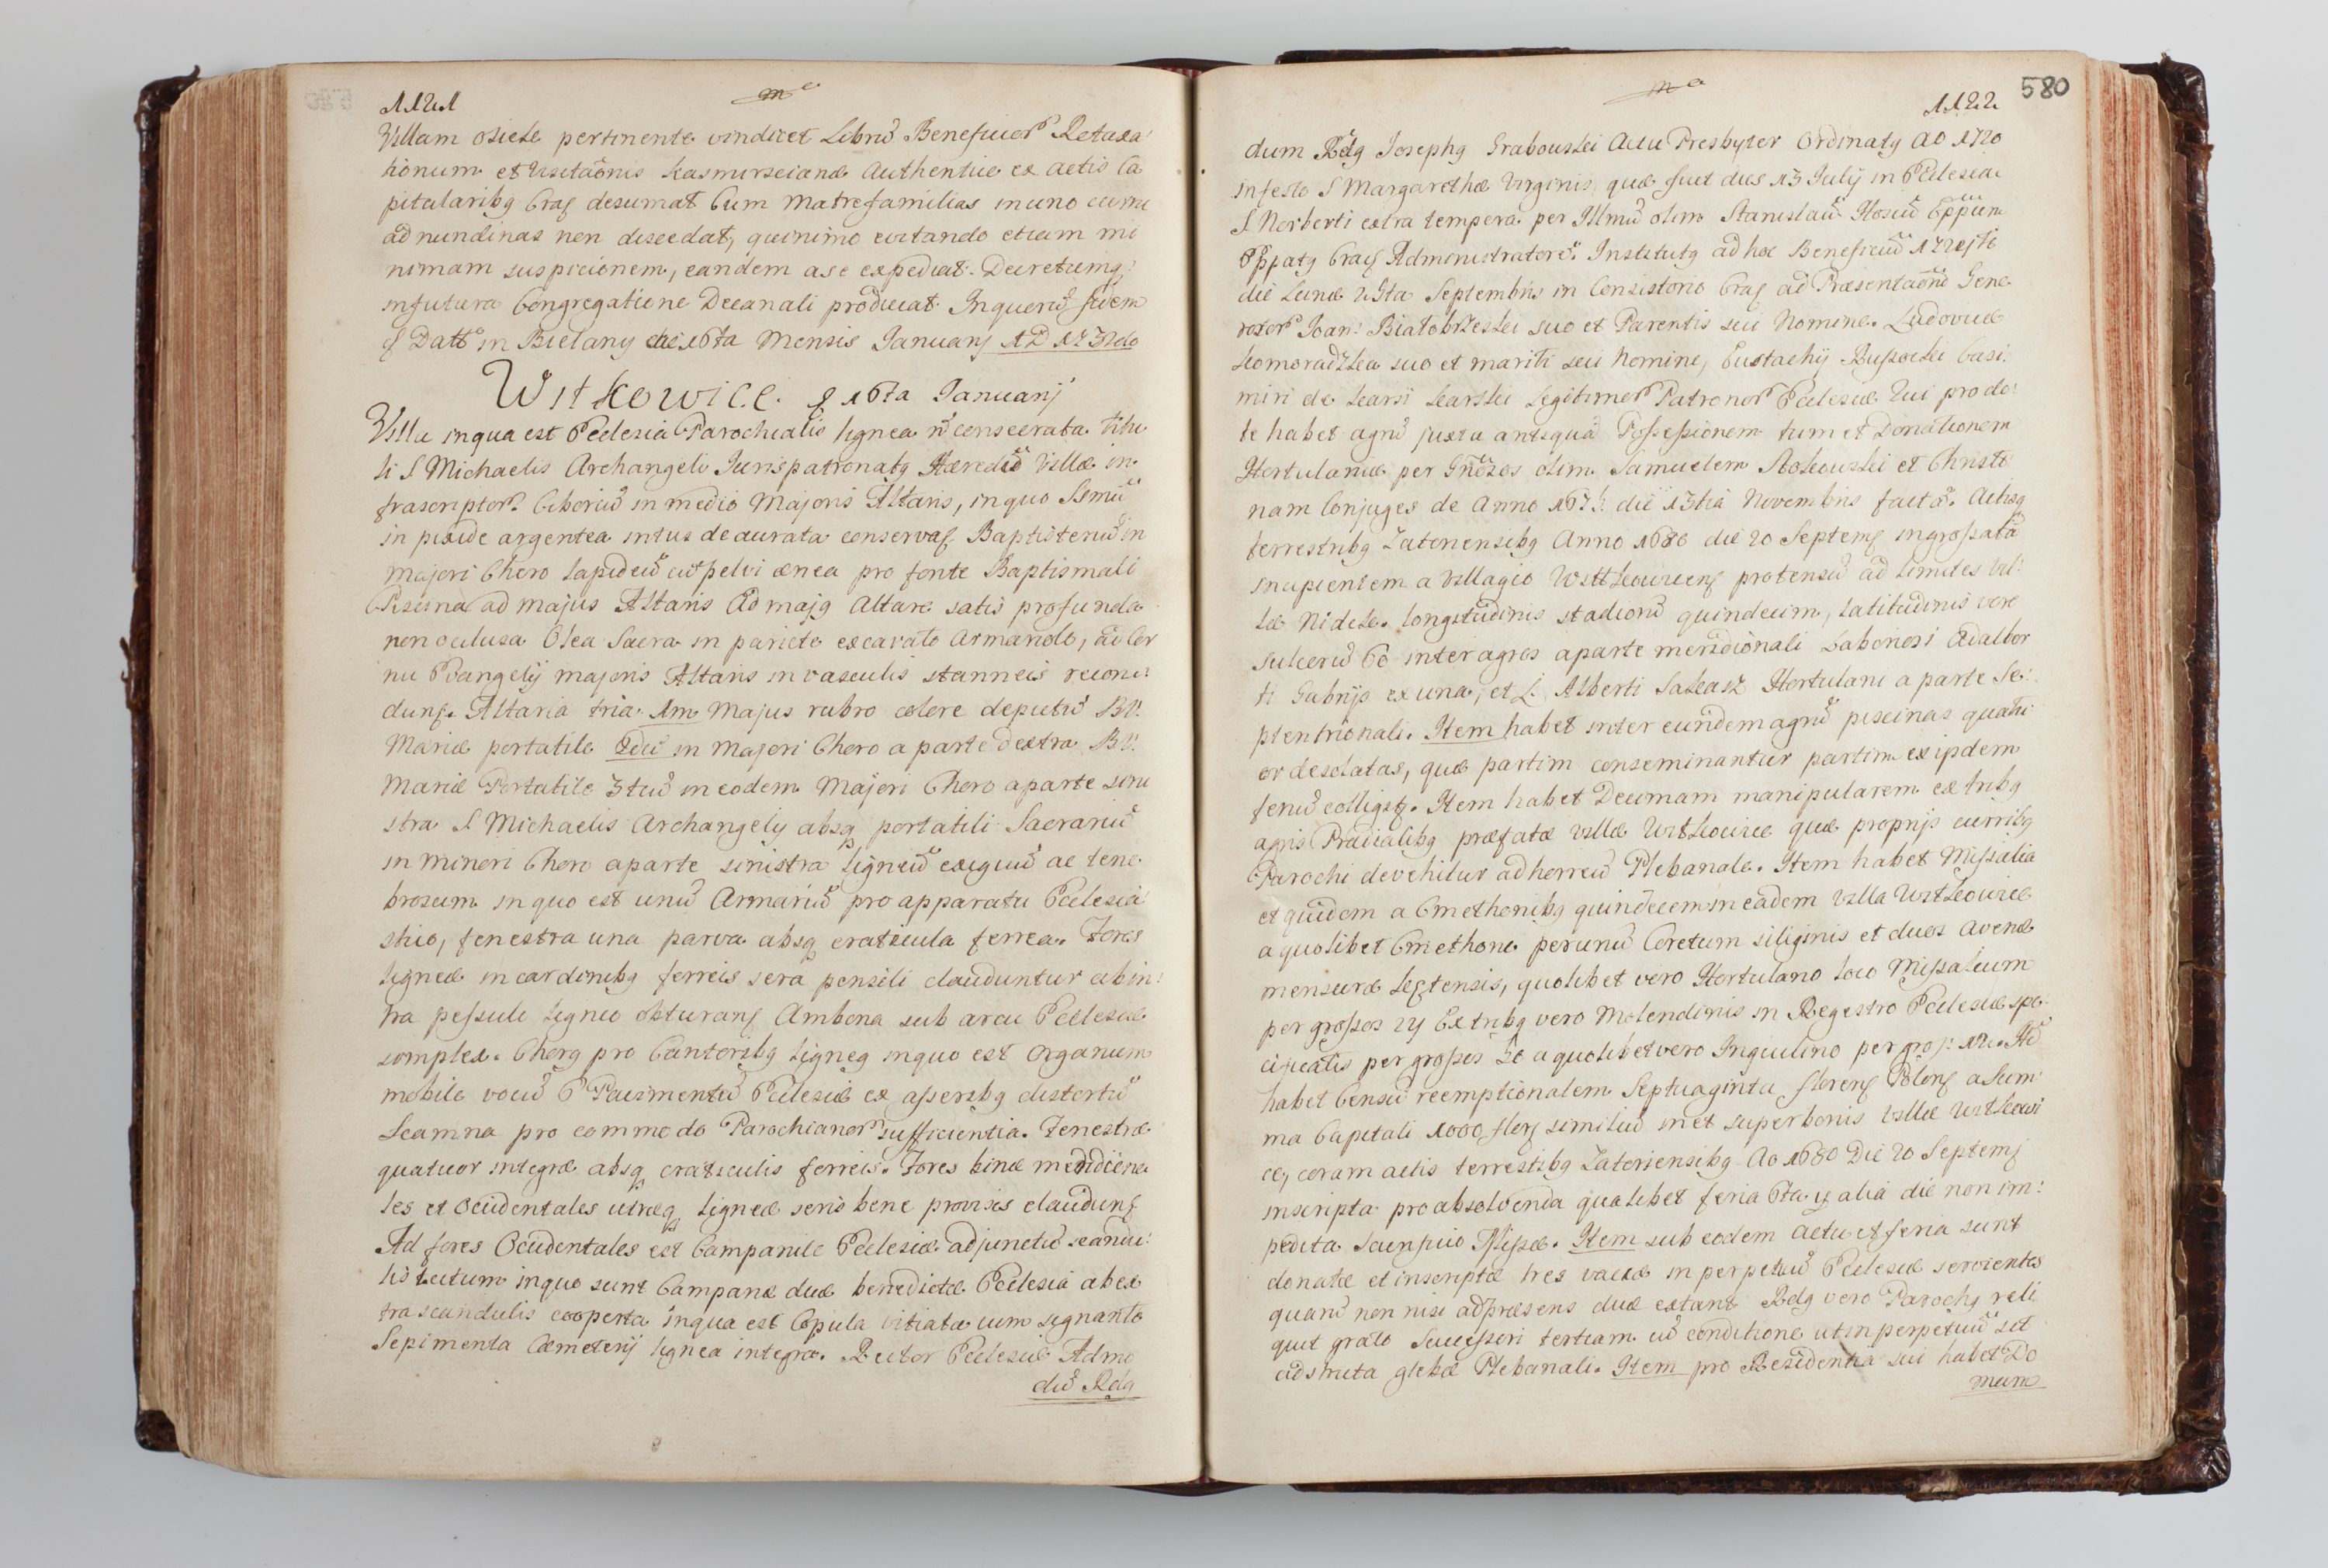 1121
Villam osiek pertinente vindicet Librũ Beneficior Retaxa:
tionum et Visitãonis Kasmirscianæ Authentice ex actis Ca
pitularibg Crac desumat Cum matrefamilias in uno curru
ad nundinas non discedat, quinimo evitando etiam mi
nimam suspicionem, eandem a se expediat. Decretumq
in futura Congregatione Decanali producat. In quorũ fidem
Datt in Bielany die 16ta Mensis Januarij AD
Witkowice 16ta Januarij
Villa in qua est Ecclesia Parochialis lignea ñ consecrata titu
li S Michaelis Archangeli Jurispatronatg Hæredũ Villæ in
frascriptor. Ciboriũ in medio Majoris Altaris, in quo Ssmũ
in pixide argentea intus deaurata conservaꝭ Baptisteriũ in
majori Choro lapideũ cũ pelvi ænea pro fonte Baptismali
Piscina ad majus Altaris Ad majg altare satis profunda
non oclusa Olea Sacra in pariete excavato armariolo, ad Cor
nu Evangelij majoris Altaris in vasculis stanneis recon:
dunꝭ. Altaria tria. 1m Majus rubro colore depictũ BV.
Mariæ portatile 2dũ in Majori Choro a parte dextra BV.
Mariæ Portatile 3tiũ in eodem Majori Choro a parte sini
stra S Michaelis Archangely absq portatili Sacrariũ
in minori Choro a parte sinistra ligneũ exiguũ ac tene
brosum in quo est unũ Armariũ pro apparatu Ecclesia
stico, fenestra una parva absq craticula ferrea. Fores
ligneæ in cardinibg ferreis sera pensili clauduntur ab in:
tra pessulo ligneo obturanꝭ Ambona sub arcu Ecclesiæ
simplex. Chorg pro Cantoribg ligneg in quo est Organum
mobile vocũ 6 Pavimentũ Ecclesiæ ex asseribg distortũ
Scamna pro commodo Parochianor sufficientia. Fenestræ
quatuor integræ absq craticulis ferreis. Fores binæ meridiona
les et Occidentales utræq ligneæ seris bene provisis claudunꝭ
Ad fores Occidentales est Campanile Ecclesiæ adjunctũ scandu:
lis tectum in quo sunt Campanæ duæ benedictæ Ecclesia ab ex
tra scandulis cooperta in qua est Copula vitiata cum signanto
Sepimenta Cæmeterij lignea integra. Rector Ecclesiæ Admo
dũ Rdg
580
1122
dum Rdg Josephg Grabouski Actu Presbyter Ordinatg AD 1720
in festo S Margarethæ Virginis quæ fuit dies 13 Julij in Ecclesia
S Norberti extra tempora per Illmũ olim Stanislaũ Hosiũ Eppum
Eppatg Crac Administratorẽ. Institutg ad hoc Beneficiũ
die Lunæ Septembris in Consistorio Crac ad Præsentaõnẽ Gene
rosor Joan: Białobrzeski suo et Parentis sui Nomine. Ludovicæ
Komoradzka suo et mariti sui nomine, Eustachij Russocki Casi:
miri de Karsi Karski Legitimor Patronor Ecclesiæ Qui pro do:
te habet agrũ juxta antiquã Possessionem tum et Donationem
Hortulaniæ per Gñosos olim Samuelem Stokouski et Christi
nam Conjuges de Anno die 13tia Novembris factã. Actisq
terrestribg Zatoriensibg Anno 1686 die 20 Septemꝭ ingrossatã
incipientem a villagio Wittkouicenꝭ protensũ ad limites vil:
læ Nidek. longitudinis stadiorũ quindecim, latitudinis vero
sulcorũ 60 inter agros a parte meridionali Laboriosi Adalber
ti Gabryś ex una, et L. Alberti Hortulani a parte Se:
ptentrionali. Item habet inter eundem agrũ piscinas quatu
or desolatas, quæ partim conseminantur partim ex ipdem
fenũ colligitꝭ. Item habet Decimam manipularem ex tribg
agris Prædialibg præfatæ villæ Witkouice quæ proprijs curribg
Parochi devehitur ad horreũ Plebanale. Item habet Missalia
et quidem a Cmethonibg quindecem in eadem Villa Witkouice
a quolibet Cmethone per unũ Coretum siliginis et duos avenæ
mensuræ Kętensis, quolibet vero Hortulano loco Missalium
per grossos Ex tribg vero Molendinis in Regestro Ecclesiæ spe:
cificatis per grossos a quolibet vero Inquilino per gros: 12. Itẽ
habet Censũ reemptionalem Septuaginta florenꝭ Polonꝭ a Sum
ma Capitali 1000 florꝭ similiũ in et super bonis Villæ Witkowi
ce, coram actis terrestribg Zatoriensibg Ao 1680 Die 20 Septemꝭ
inscripta pro absolvenda qualibet feria 6ta alia die non im:
pedita Missa. Item sub eodem actu et feria sunt
donatæ et inscriptæ tres vaccæ in perpetuũ Ecclesiæ servientes
quarũ non nisi ad præsens duæ extant Rdg vero Parochg reli
quit grato Successori tertiam cũ conditione ut in perpetuũ sit
adstructa glebæ Plebanali. Item pro Residentia sui habet Do
mum